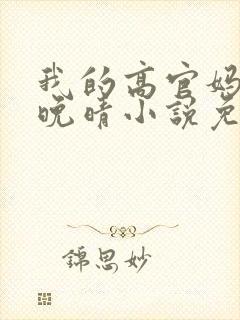 我的高官妈
晚晴小说免
錦思妙